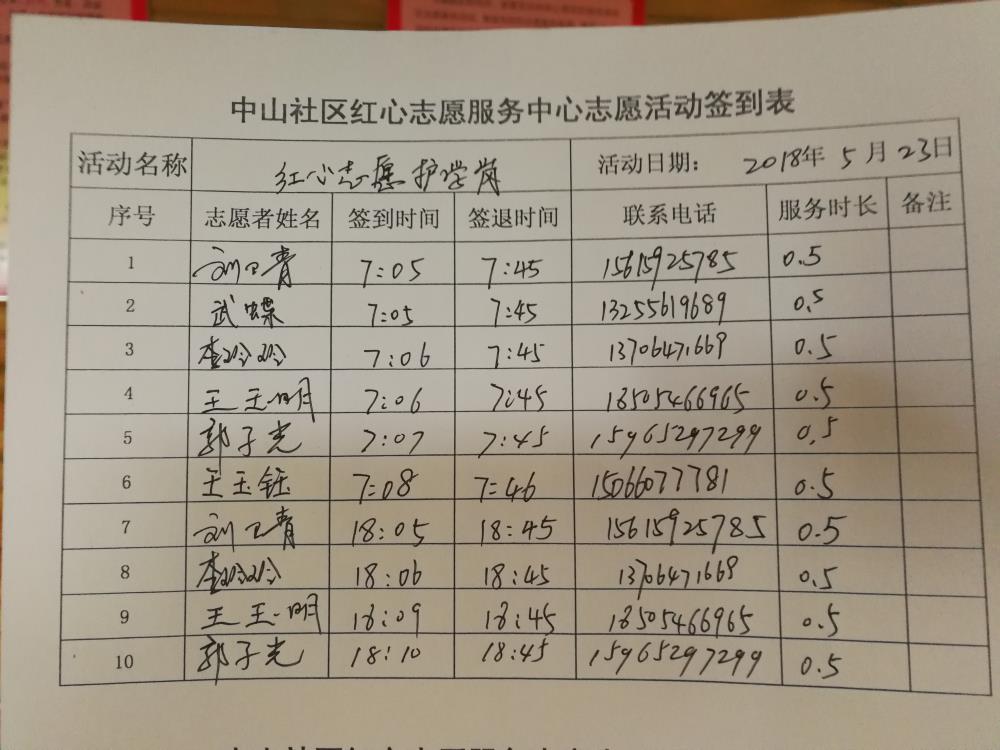 中山社区红心志愿服务中心志愿活动签到表
活动名称 红心志愿护学岗 活动日期: 2018年5月23日
序号 志愿者姓名 签到时间 签退时间 联系电话 服务时长 备注
1 刘卫青 7:05 7:45 15615925785 0.5
2 武蝶 7:05 7:45 13255619689 0.5
3 李玲玲 7:06 7:45 13706471669 0.5
4 王玉明 7:06 7:45 18505466965 0.5
5 郭子光 7:07 7:45 15965297299 0.5
6 王玉钰 7:08 7:46 15066077781 0.5
7 刘卫青 18:05 18:45 15615925785 0.5
8 李玲玲 18:06 18:45 13706471669 0.5
9 王玉明 18:09 18:45 18505466965 0.5
10 郭子光 18:10 18:45 15965297299 0.5